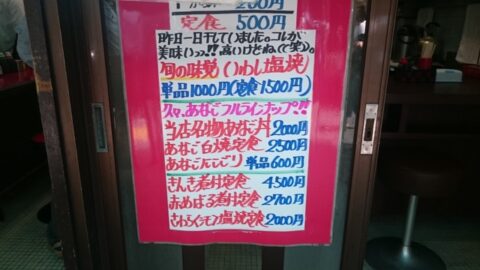 200円
定食 500円
昨日一日干していました。コレが
美味いっ!!高いけどね。(笑)。
旬の味覚(いわし塩焼)
単品1000円(定食1500円)
久々、あなごフルラインナップ!!
当店名物あなご丼 2000円
あなご白焼定食 2500円
あなごにこごり 単品600円
きんき煮付定食 4500円
赤めばる煮付定食 2700円
さわら(カマ)塩焼定食 2000円